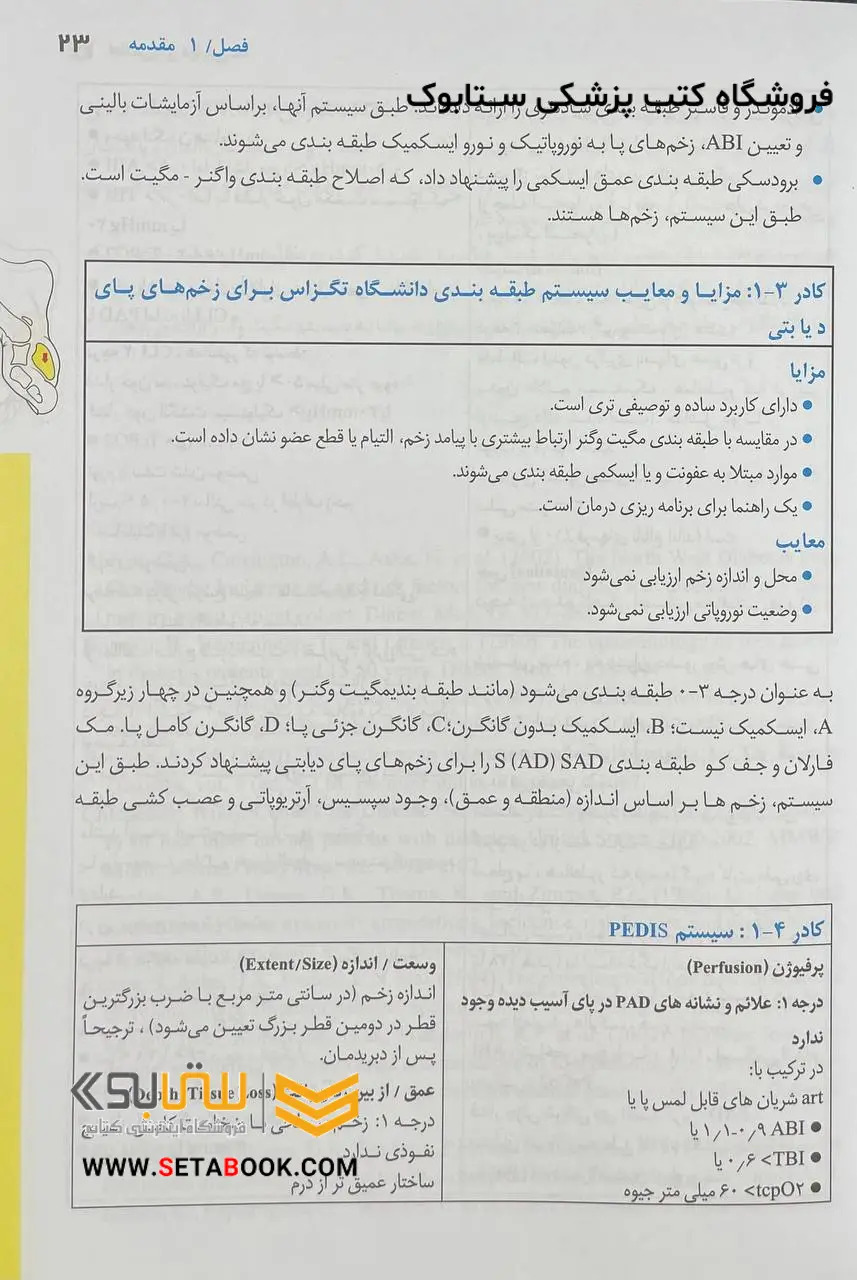 فصل/ ۱ مقدمه ۲۳
فروشگاه کتب پزشکی ستابوک
• ادموندز و فاستر طبقه بندی ساده‌تری را ارائه داده‌اند. طبق سیستم آنها، براساس آزمایشات بالینی
و تعیین ABI، زخم‌های پا به نوروپاتیک و نورو ایسکمیک طبقه بندی می‌شوند.
• برودسکی طبقه بندی عمق ایسکمی را پیشنهاد داد، که اصلاح طبقه بندی واگنر - مگیت است.
طبق این سیستم، زخم‌ها هستند.
کادر ۳-۱: مزایا و معایب سیستم طبقه بندی دانشگاه تگزاس برای زخم‌های پای
دیابتی
مزایا
• دارای کاربرد ساده و توصیفی تری است.
• در مقایسه با طبقه بندی مگیت وگنر ارتباط بیشتری با پیامد زخم، التیام یا قطع عضو نشان داده است.
• موارد مبتلا به عفونت و یا ایسکمی طبقه بندی می‌شوند.
• یک راهنما برای برنامه ریزی درمان است.
معایب
• محل و اندازه زخم ارزیابی نمی‌شود
• وضعیت نوروپاتی ارزیابی نمی‌شود.
به عنوان درجه ۳-۰ طبقه بندی می‌شود (مانند طبقه بندیمگیت وگنر) و همچنین در چهار زیرگروه
A، ایسکمیک نیست؛ B، ایسکمیک بدون گانگرن؛C، گانگرن جزئی پا؛ D، گانگرن کامل پا. مک
فارلان و جف کو طبقه بندی S (AD) SAD را برای زخم‌های پای دیابتی پیشنهاد کردند. طبق این
سیستم، زخم ها بر اساس اندازه (منطقه و عمق)، وجود سپسیس، آرتریوپاتی و عصب کشی طبقه
کادر ۴-۱ : سیستم PEDIS
پرفیوژن (Perfusion)
درجه ۱: علائم و نشانه های PAD در پای آسیب دیده وجود
ندارد
در ترکیب با:
art شریان های قابل لمس پا یا
• ABI ۰٫۹-۱٫۱ یا
• TBI> ۰٫۶ یا
• tcpO۲> ۶۰ میلی متر جیوه
وسعت / اندازه (Extent/Size)
اندازه زخم (در سانتی متر مربع با ضرب بزرگترین
قطر در دومین قطر بزرگ تعیین می‌شود) ، ترجیحاً
پس از دبریدمان.
عمق / از بین (Depth/Tissue Loss)
درجه ۱: زخم
نفوذی ندارد
ساختار عمیق تر از درم
ستابوک
فروشگاه اینترنتی کتاب
WWW.SETABOOK.COM